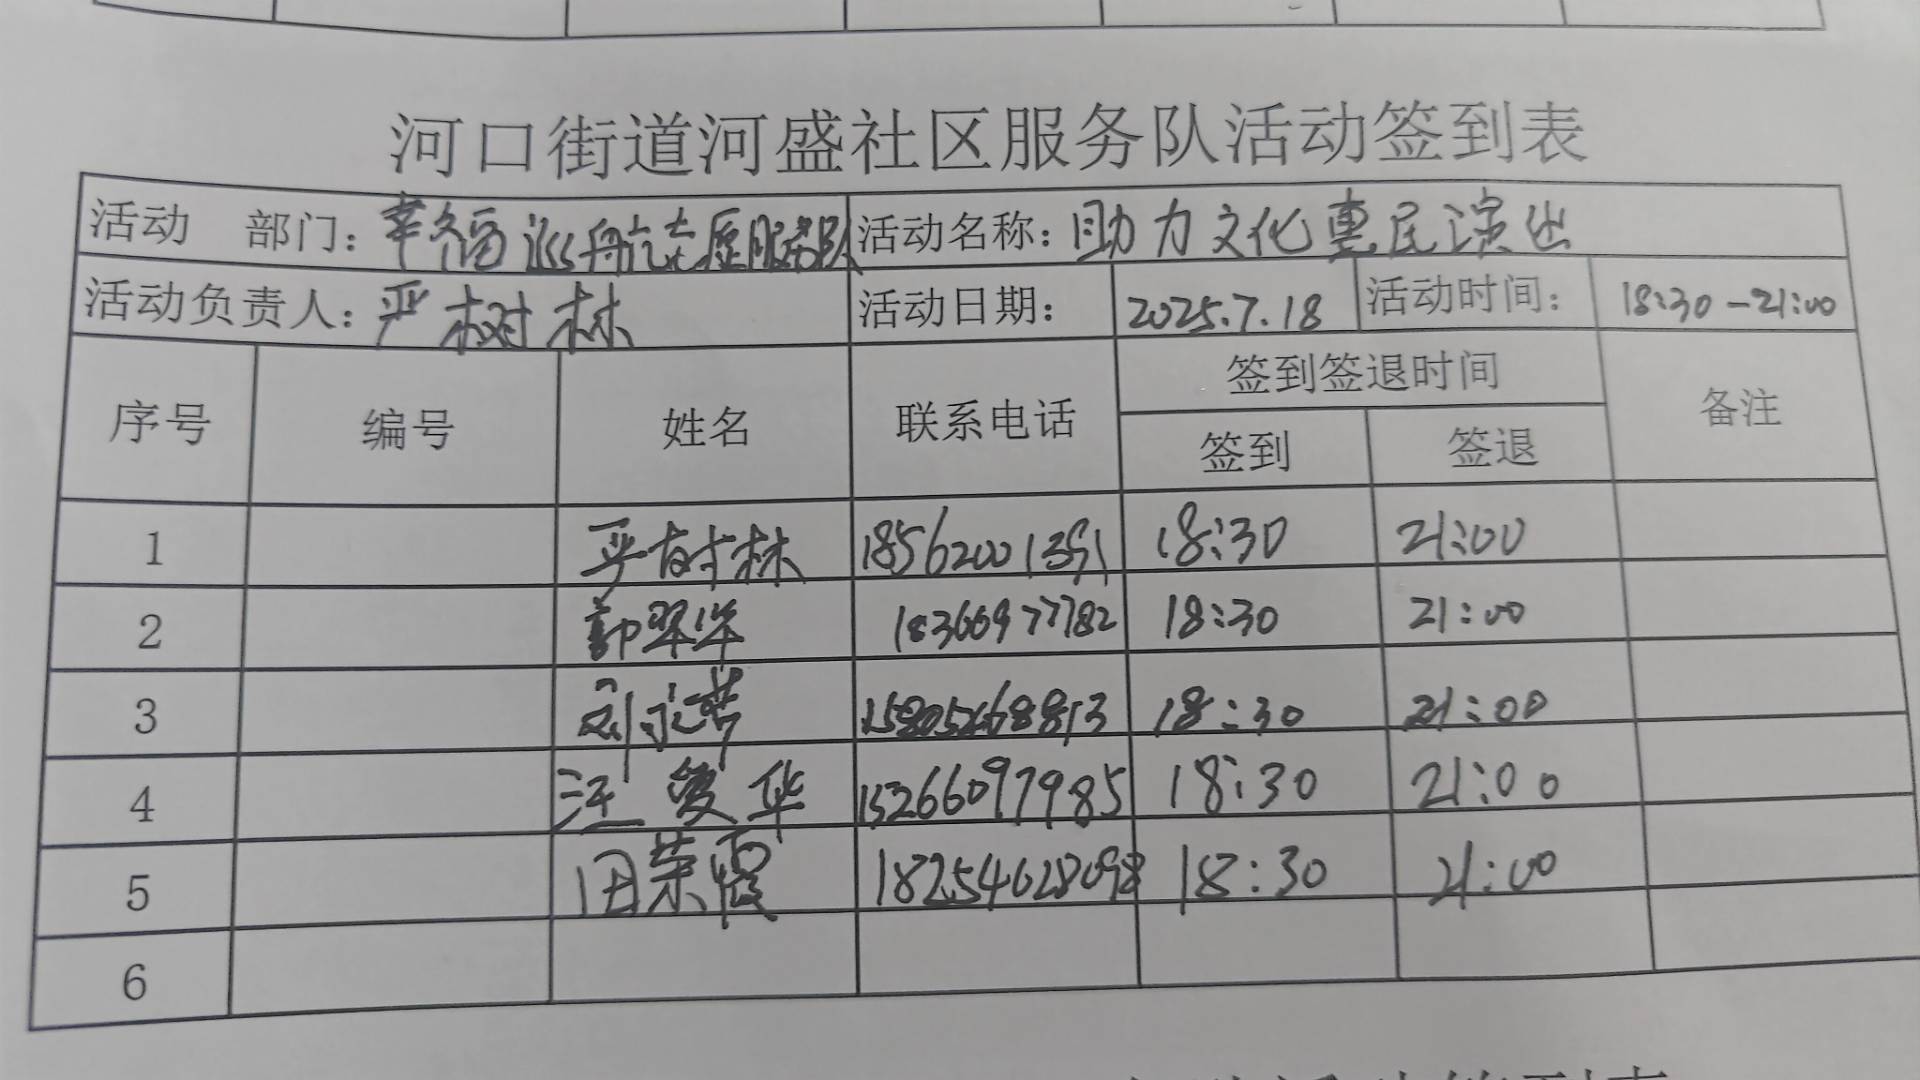 河口街道河盛社区服务队活动签到表
活动 部门：幸福巡航志愿服务队 活动名称：助力文化惠民演出
活动负责人：严树林 活动日期： 2025.7.18 活动时间： 18:30-21:00
序号 编号 姓名 联系电话 签到签退时间 备注
签到 签退
1 严树林 18562001391 18:30 21:00
2 翠华 18366977782 18:30 21:00
3 刘 18:30 21:00
4 汪爱华 15266097985 18:30 21:00
5 田荣霞 18254628098 18:30 21:00
6